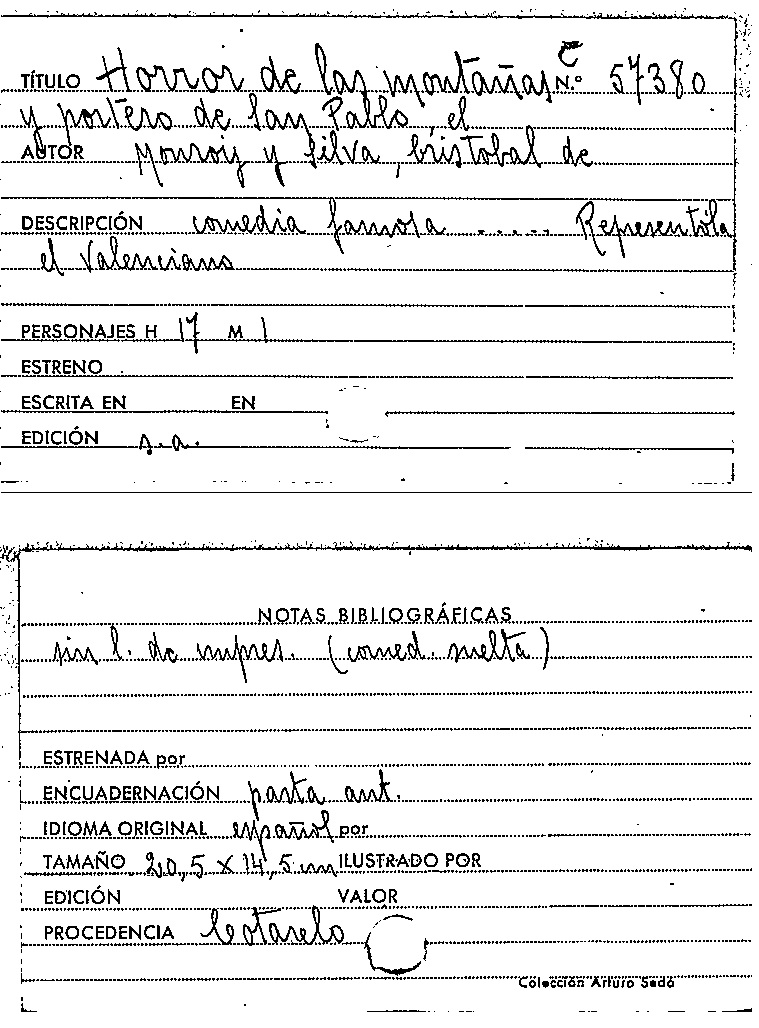 TÍTULO Horror de las montañas N.º 57380
y portero de San Pablo, el
AUTOR Monroy y Silva, Cristobal de
DESCRIPCIÓN comedia famosa ..... Representóla
el Valenciano
PERSONAJES H 17 M 1
ESTRENO
ESCRITA EN EN
EDICIÓN s.a.
NOTAS BIBLIOGRÁFICAS
sin l. de impres. (comed. suelta)
ESTRENADA por
ENCUADERNACIÓN pasta ant.
IDIOMA ORIGINAL español por
TAMAÑO 20,5 x 14,5 cm ILUSTRADO POR
EDICIÓN VALOR
PROCEDENCIA Cotarelo
Colección Arturo Sedó